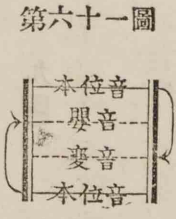 第六十一圖
本位音
嬰音
变音
本位音